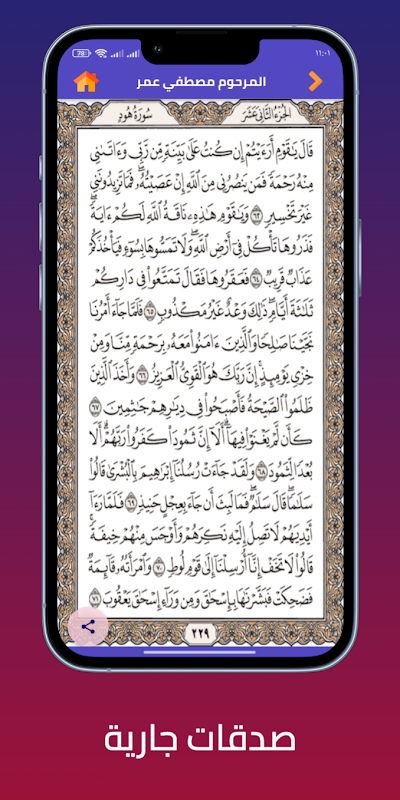 ١١:٠١
المرحوم مصطفي عمر
الجزء الثاني عشر
سورة هود
قَالَ يَٰقَوْمِ أَرَءَيْتُمْ إِن كُنتُ عَلَىٰ بَيِّنَةٍ مِّن رَّبِّي وَءَاتَىٰنِي
مِنْهُ رَحْمَةً فَمَن يَنصُرُنِي مِنَ ٱللَّهِ إِنْ عَصَيْتُهُۥ فَمَا تَزِيدُونَنِي
غَيْرَ تَخْسِيرٍ ٦٣ وَيَٰقَوْمِ هَٰذِهِۦ نَاقَةُ ٱللَّهِ لَكُمْ ءَايَةً
فَذَرُوهَا تَأْكُلْ فِيٓ أَرْضِ ٱللَّهِ وَلَا تَمَسُّوهَا بِسُوٓءٍ فَيَأْخُذَكُمْ
عَذَابٌ قَرِيبٌ ٦٤ فَعَقَرُوهَا فَقَالَ تَمَتَّعُوا۟ فِي دَارِكُمْ
ثَلَٰثَةَ أَيَّامٍ ذَٰلِكَ وَعْدٌ غَيْرُ مَكْذُوبٍ ٦٥ فَلَمَّا جَآءَ أَمْرُنَا
نَجَّيْنَا صَٰلِحًا وَٱلَّذِينَ ءَامَنُوا۟ مَعَهُۥ بِرَحْمَةٍ مِّنَّا وَمِنْ
خِزْيِ يَوْمِئِذٍ إِنَّ رَبَّكَ هُوَ ٱلْقَوِيُّ ٱلْعَزِيزُ ٦٦ وَأَخَذَ ٱلَّذِينَ
ظَلَمُوا۟ ٱلصَّيْحَةُ فَأَصْبَحُوا۟ فِي دِيَٰرِهِمْ جَٰثِمِينَ ٦٧
كَأَن لَّمْ يَغْنَوْا۟ فِيهَآ أَلَآ إِنَّ ثَمُودَا۟ كَفَرُوا۟ رَبَّهُمْ أَلَا
بُعْدًا لِّثَمُودَ ٦٨ وَلَقَدْ جَآءَتْ رُسُلُنَآ إِبْرَٰهِيمَ بِٱلْبُشْرَىٰ قَالُوا۟
سَلَٰمًا قَالَ سَلَٰمٌ فَمَا لَبِثَ أَن جَآءَ بِعِجْلٍ حَنِيذٍ ٦٩ فَلَمَّا رَءَآ
أَيْدِيَهُمْ لَا تَصِلُ إِلَيْهِ نَكِرَهُمْ وَأَوْجَسَ مِنْهُمْ خِيفَةً
قَالُوا۟ لَا تَخَفْ إِنَّآ أُرْسِلْنَآ إِلَىٰ قَوْمِ لُوطٍ ٧٠ وَٱمْرَأَتُهُۥ قَآئِمَةٌ
فَضَحِكَتْ فَبَشَّرْنَٰهَا بِإِسْحَٰقَ وَمِن وَرَآءِ إِسْحَٰقَ يَعْقُوبَ ٧١
٢٢٩
صدقات جارية